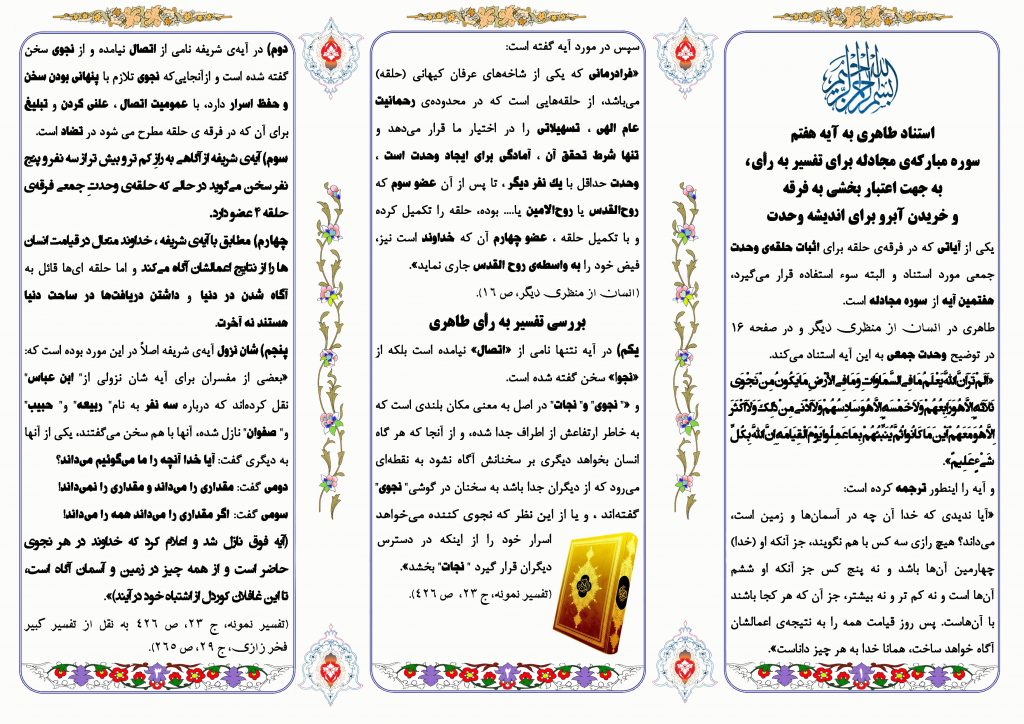 بسم الله الرحمن الرحیم
استناد طاهری به آیه هفتم
سوره مبارکه‌ی مجادله برای تفسیر به رأی،
به جهت اعتبار بخشی به فرقه
و خریدن آبرو برای اندیشه وحدت
یکی از آیاتی که در فرقه‌ی حلقه برای اثبات حلقه‌ی وحدت
جمعی مورد استناد و البته سوء استفاده قرار می‌گیرد،
هفتمین آیه از سوره مجادله است.
طاهری در انسان از منظری دیگر و در صفحه ۱۶
در توضیح وحدت جمعی به این آیه استناد می‌کند.
«أَلَمْ تَرَ أَنَّ اللَّهَ يَعْلَمُ مَا فِي السَّمَاوَاتِ وَ مَا فِي الْأَرْضِ مَا يَكُونُ مِنْ نَجْوَى
ثَلَاثَةٍ إِلَّا هُوَ رَابِعُهُمْ وَ لَا خَمْسَةٍ إِلَّا هُوَ سَادِسُهُمْ وَ لَا أَدْنَى مِنْ ذَلِكَ وَ لَا أَكْثَرَ
إِلَّا هُوَ مَعَهُمْ أَيْنَ مَا كَانُوا ثُمَّ يُنَبِّئُهُمْ بِمَا عَمِلُوا يَوْمَ الْقِيَامَةِ إِنَّ اللَّهَ بِكُلِّ
شَيْءٍ عَلِيمٌ».
و آیه را اینطور ترجمه کرده است:
«آیا ندیدی که خدا آن چه در آسمان‌ها و زمین است،
می‌داند؟ هیچ رازی سه کس با هم نگویند، جز آنکه او (خدا)
چهارمین آن‌ها باشد و نه پنج کس جز آنکه او ششم
آن‌ها است و نه کم تر و نه بیشتر، جز آن که هر کجا باشند
با آن‌هاست. پس روز قیامت همه را به نتیجه‌ی اعمالشان
آگاه خواهد ساخت، همانا خدا به هر چیز داناست».
۱
سپس در مورد آیه گفته است:
«فرادرمانی که یکی از شاخه‌های عرفان کیهانی (حلقه)
می‌باشد، از حلقه‌هایی است که در محدوده‌ی رحمانیت
عام الهی ، تسهیلاتی را در اختیار ما قرار می‌دهد و
تنها شرط تحقق آن ، آمادگی برای ایجاد وحدت است ،
وحدت حداقل با یك نفر دیگر ، تا پس از آن عضو سوم که
روح‌القدس یا روح‌الامین یا.... بوده، حلقه را تکمیل کرده
و با تکمیل حلقه ، عضو چهارم آن که خداوند است نیز،
فیض خود را به واسطه‌ی روح القدس جاری نماید».
(انسان از منظری دیگر، ص ۱۶).
بررسی تفسیر به رأی طاهری
یکم) در آیه نتنها نامی از «اتصال» نیامده است بلکه از
«نجوا» سخن گفته شده است.
و «" نجوی" و" نجات" در اصل به معنی مکان بلندی است که
به خاطر ارتفاعش از اطراف جدا شده، و از آنجا که هر گاه
انسان بخواهد دیگری بر سخنانش آگاه نشود به نقطه‌ای
می‌رود که از دیگران جدا باشد به سخنان در گوشی" نجوی"
گفته‌اند ، و یا از این نظر که نجوی کننده می‌خواهد
اسرار خود را از اینکه در دسترس
دیگران قرار گیرد " نجات" بخشد».
(تفسیر نمونه، ج ۲۳، ص ۴۲۶).
۲
دوم) در آیه‌ی شریفه نامی از اتصال نیامده و از نجوی سخن
گفته شده است و ازآنجایی‌که نجوی تلازم با پنهانی بودن سخن
و حفظ اسرار دارد، با عمومیت اتصال ، علنی کردن و تبلیغ
برای آن که در فرقه ی حلقه مطرح می شود در تضاد است.
سوم) آیه‌ی شریفه از آگاهی به راز کم تر و بیش تر از سه نفر و پنج
نفر سخن می‌گوید در حالی که حلقه‌ی وحدتِ جمعی فرقه‌ی
حلقه ۴ عضو دارد.
چهارم) مطابق با آیه‌ی شریفه ، خداوند متعال در قیامت انسان
ها را از نتایج اعمالشان آگاه می‌کند و اما حلقه ای‌ها قائل به
آگاه شدن در دنیا و داشتن دریافت‌ها در ساحت دنیا
هستند نه آخرت.
پنجم) شان نزول آیه‌ی شریفه اصلاً در این مورد بوده است که:
«بعضی از مفسران برای آیه شان نزولی از" ابن عباس"
نقل کرده‌اند که درباره سه نفر به نام" ربیعه" و" حبیب"
و" صفوان" نازل شده، آنها با هم سخن می‌گفتند، یکی از آنها
به دیگری گفت: آیا خدا آنچه را ما می‌گوئیم می‌داند؟
دومی گفت: مقداری را می‌داند و مقداری را نمی‌داند!
سومی گفت: اگر مقداری را می‌داند همه را می‌داند!
(آیه فوق نازل شد و اعلام کرد که خداوند در هر نجوی
حاضر است و از همه چیز در زمین و آسمان آگاه است،
تا این غافلان کوردل از اشتباه خود در آیند)».
(تفسیر نمونه، ج ۲۳، ص ۴۲۶ به نقل از تفسیر کبیر
فخر رازی، ج ۲۹، ص ۲۶۵).
۳